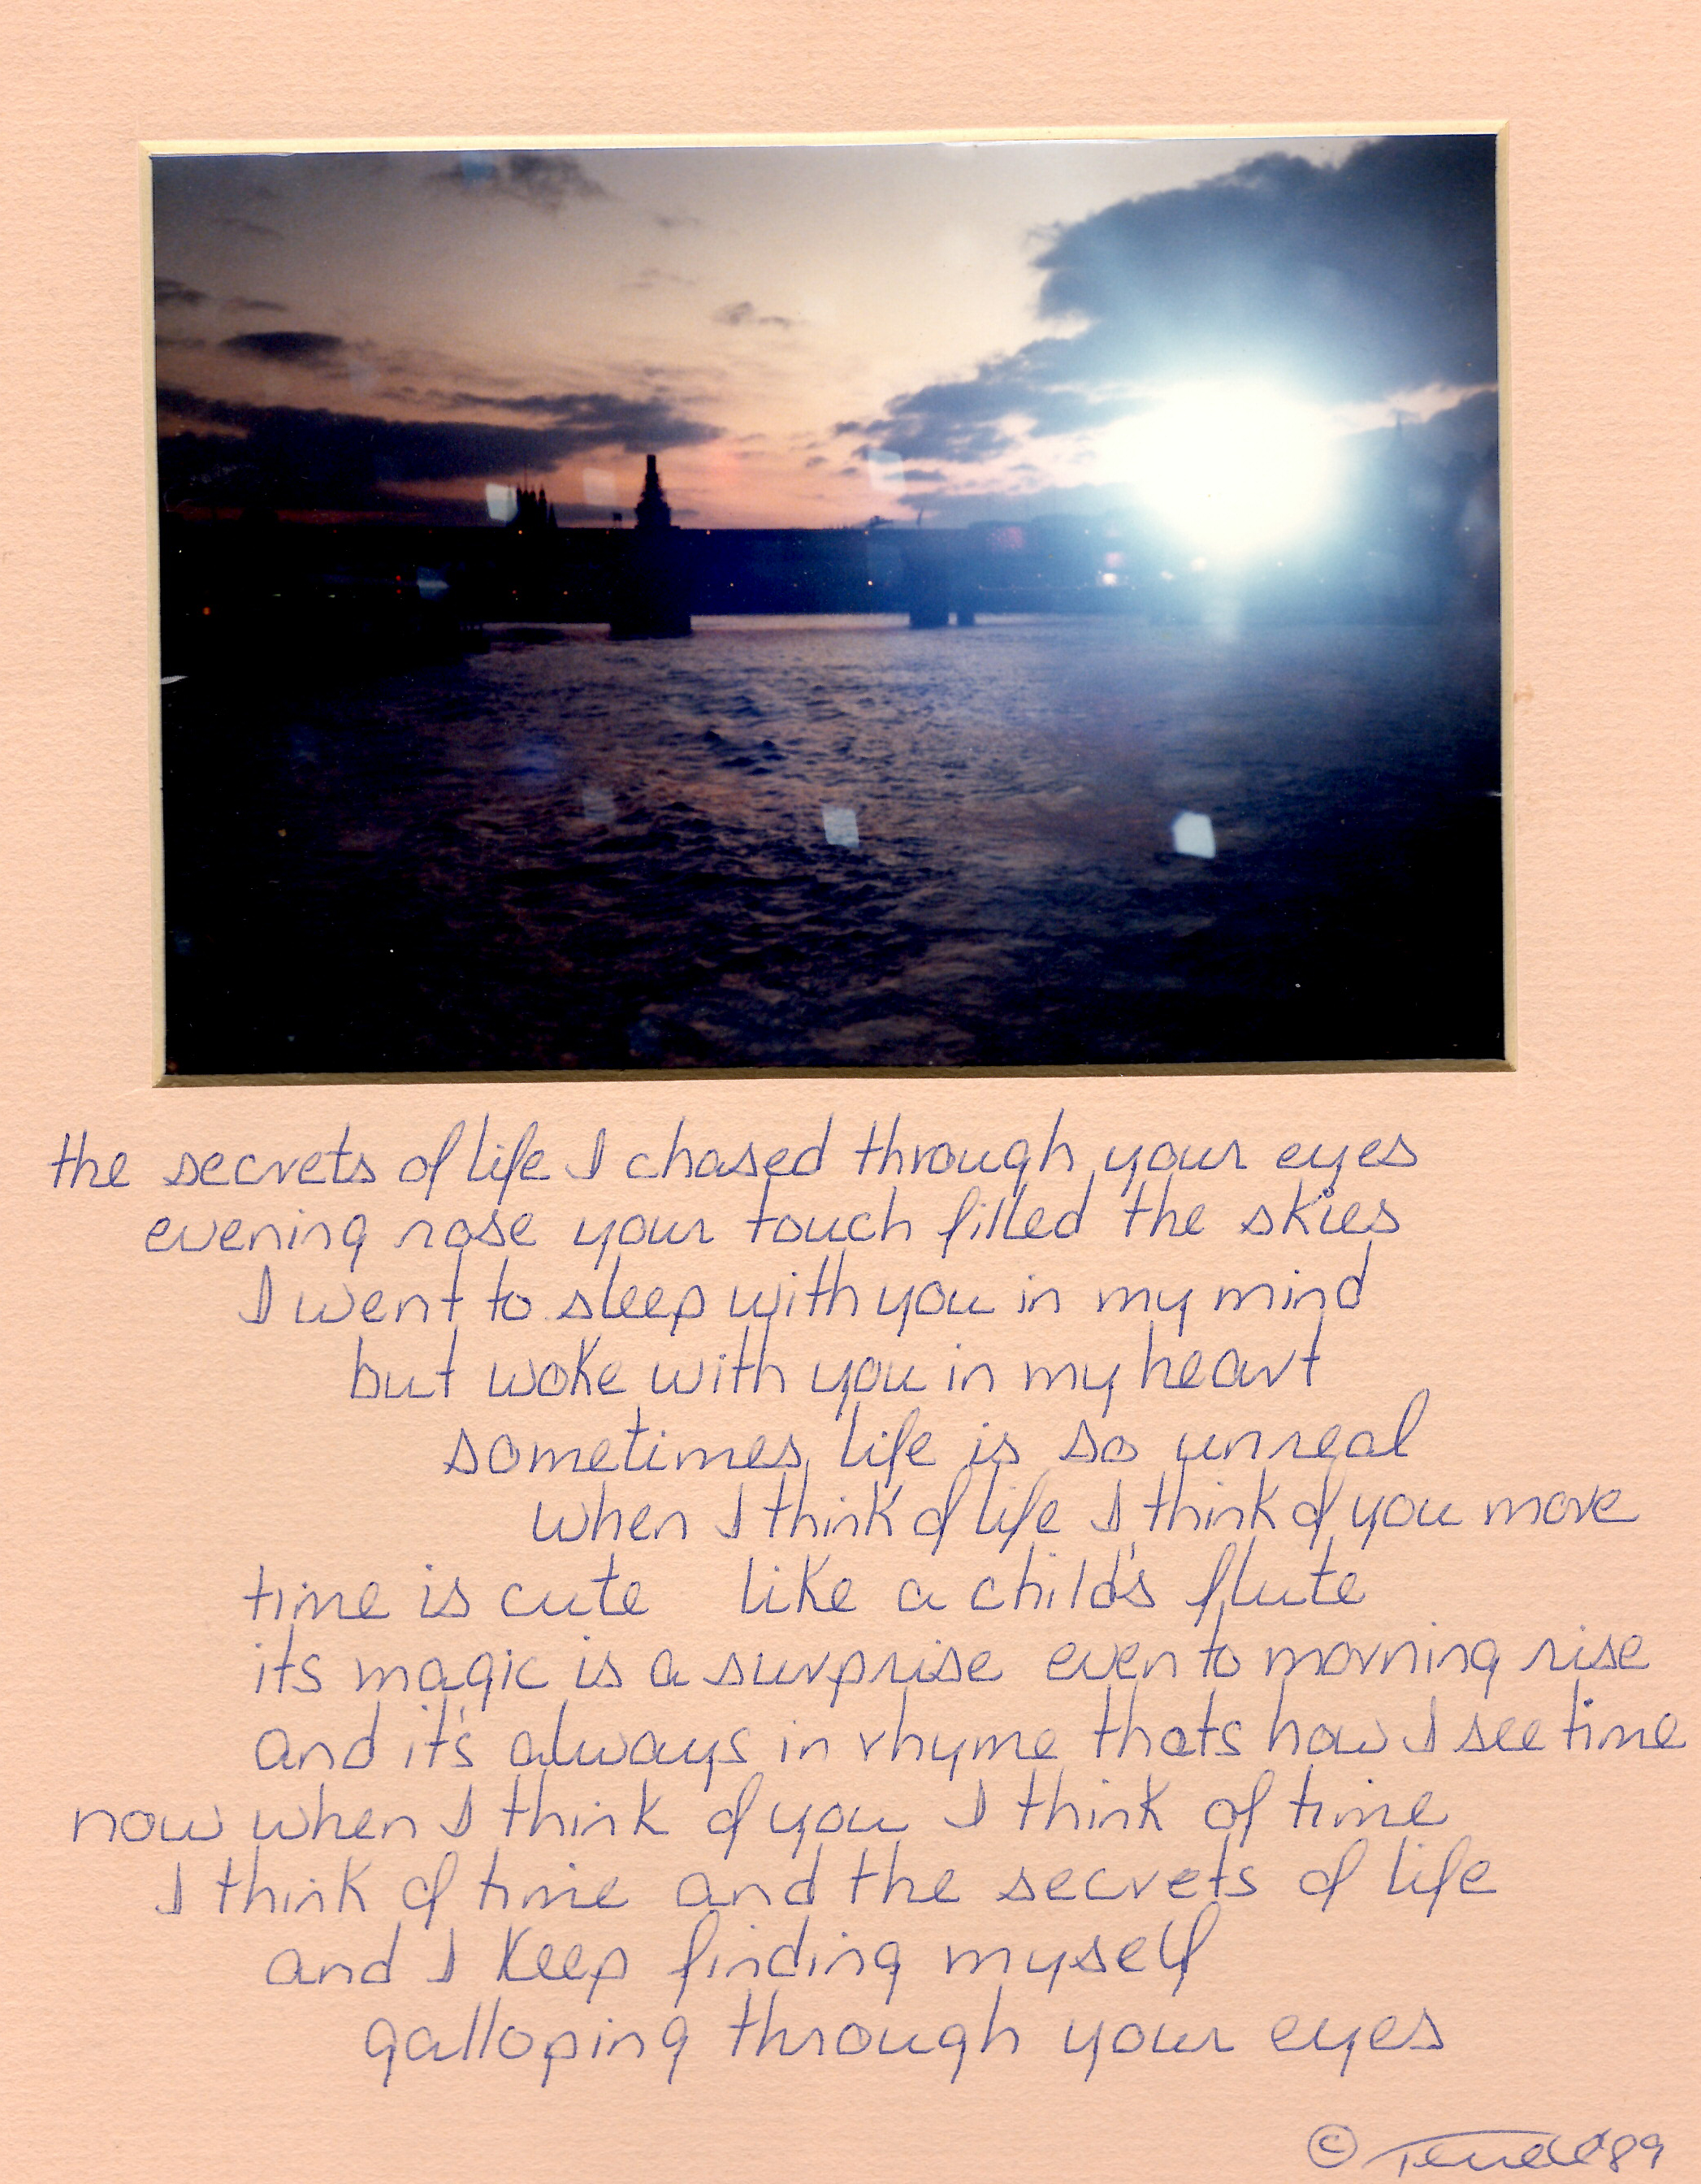 the secrets of life I chased through your eyes
evening rose your touch filled the skies
I went to sleep with you in my mind
but woke with you in my heart
sometimes life is so unreal
when I think of life I think of you more
time is cute like a child's flute
its magic is a surprise even to morning rise
and it's always in rhyme thats how I see time
now when I think of you I think of time
I think of time and the secrets of life
and I keep finding myself
galloping through your eyes
© '89